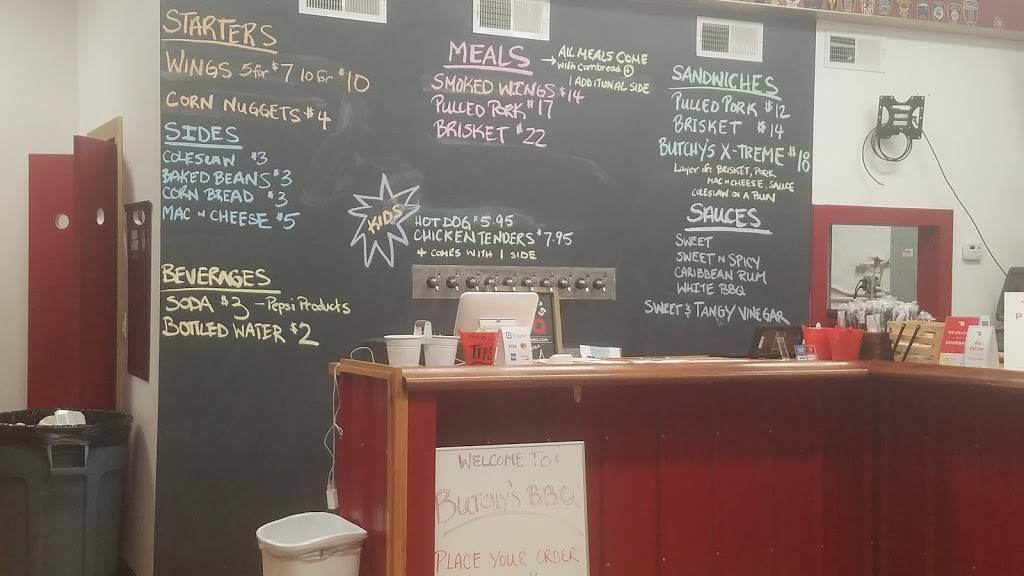 STARTERS
WINGS 5 for $7 10 for $10
CORN NUGGETS $4
SIDES
COLESLAW $3
BAKED BEANS $3
CORN BREAD $3
MAC N CHEESE $5
BEVERAGES
SODA $3 - Pepsi Products
BOTTLED WATER $2
MEALS
ALL MEALS COME
with Cornbread &
1 ADDITIONAL SIDE
SMOKED WINGS $14
PULLED PORK $17
BRISKET $22
KIDS
HOT DOG $5.95
CHICKEN TENDERS $7.95
* COMES WITH 1 SIDE
SANDWICHES
PULLED PORK $12
BRISKET $14
BUTCHY'S X-TREME $18
Layer of: BRISKET, PORK,
MAC N CHEESE, SAUCE
COLESLAW ON A BUN
SAUCES
SWEET
SWEET N SPICY
CARIBBEAN RUM
WHITE BBQ
SWEET & TANGY VINEGAR
TIPS
VISA
WELCOME TO:
BUTCHY'S BBQ
PLACE YOUR ORDER